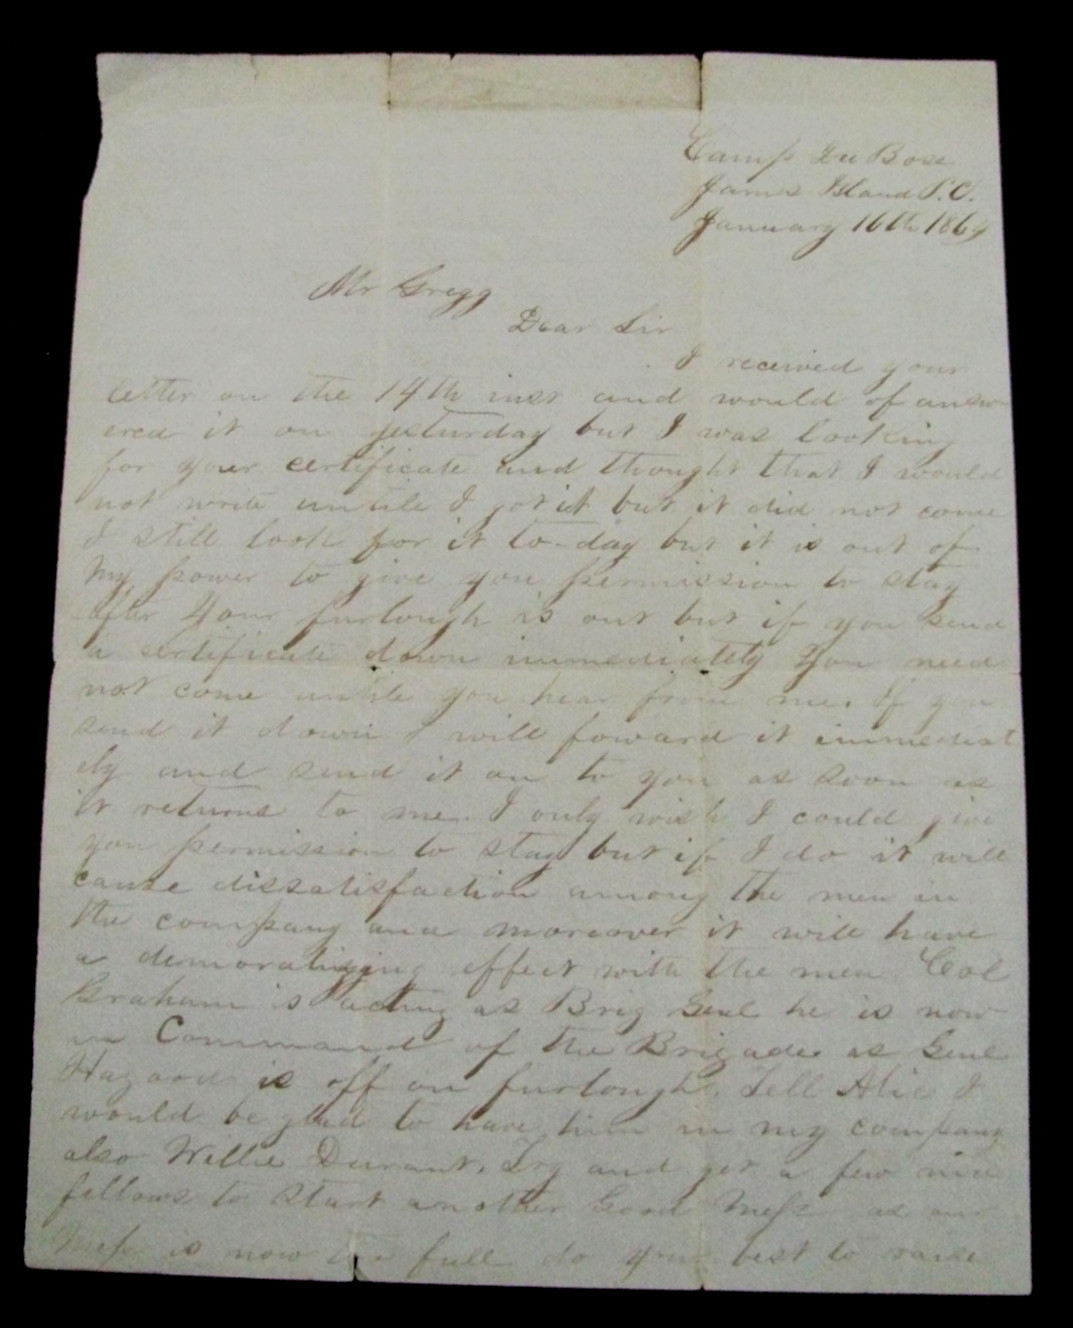 Camp Du Bose
James Island S.C.
January 16th 1864
Mr Gregg
Dear Sir
I received your
letter on the 14th inst and would of answ
ered it on yesturday but I was looking
for your certificate and thought that I would
not write untile I got it but it did not come
I still look for it to-day but it is out of
My power to give you permission to stay
after your furlough is out but if you send
a certificate down immediately you need
not come untile you hear from me. If you
send it down I will foward it immediat
ely and send it on to you as soon as
it returns to me. I only wish I could give
you permission to stay but if I do it will
cause dissatisfaction among the men in
the company and moreover it will have
a demoralizing effect with the men Col
Graham is acting as Brig Genl he is now
in Command of the Brigade as Genl
Hagood is off on furlough. Tell Alic I
would be glad to have him in my company
also Willie Durant. Try and get a few nice
fellows to start another Good Mess as our
Mess is now too full do your best to raise